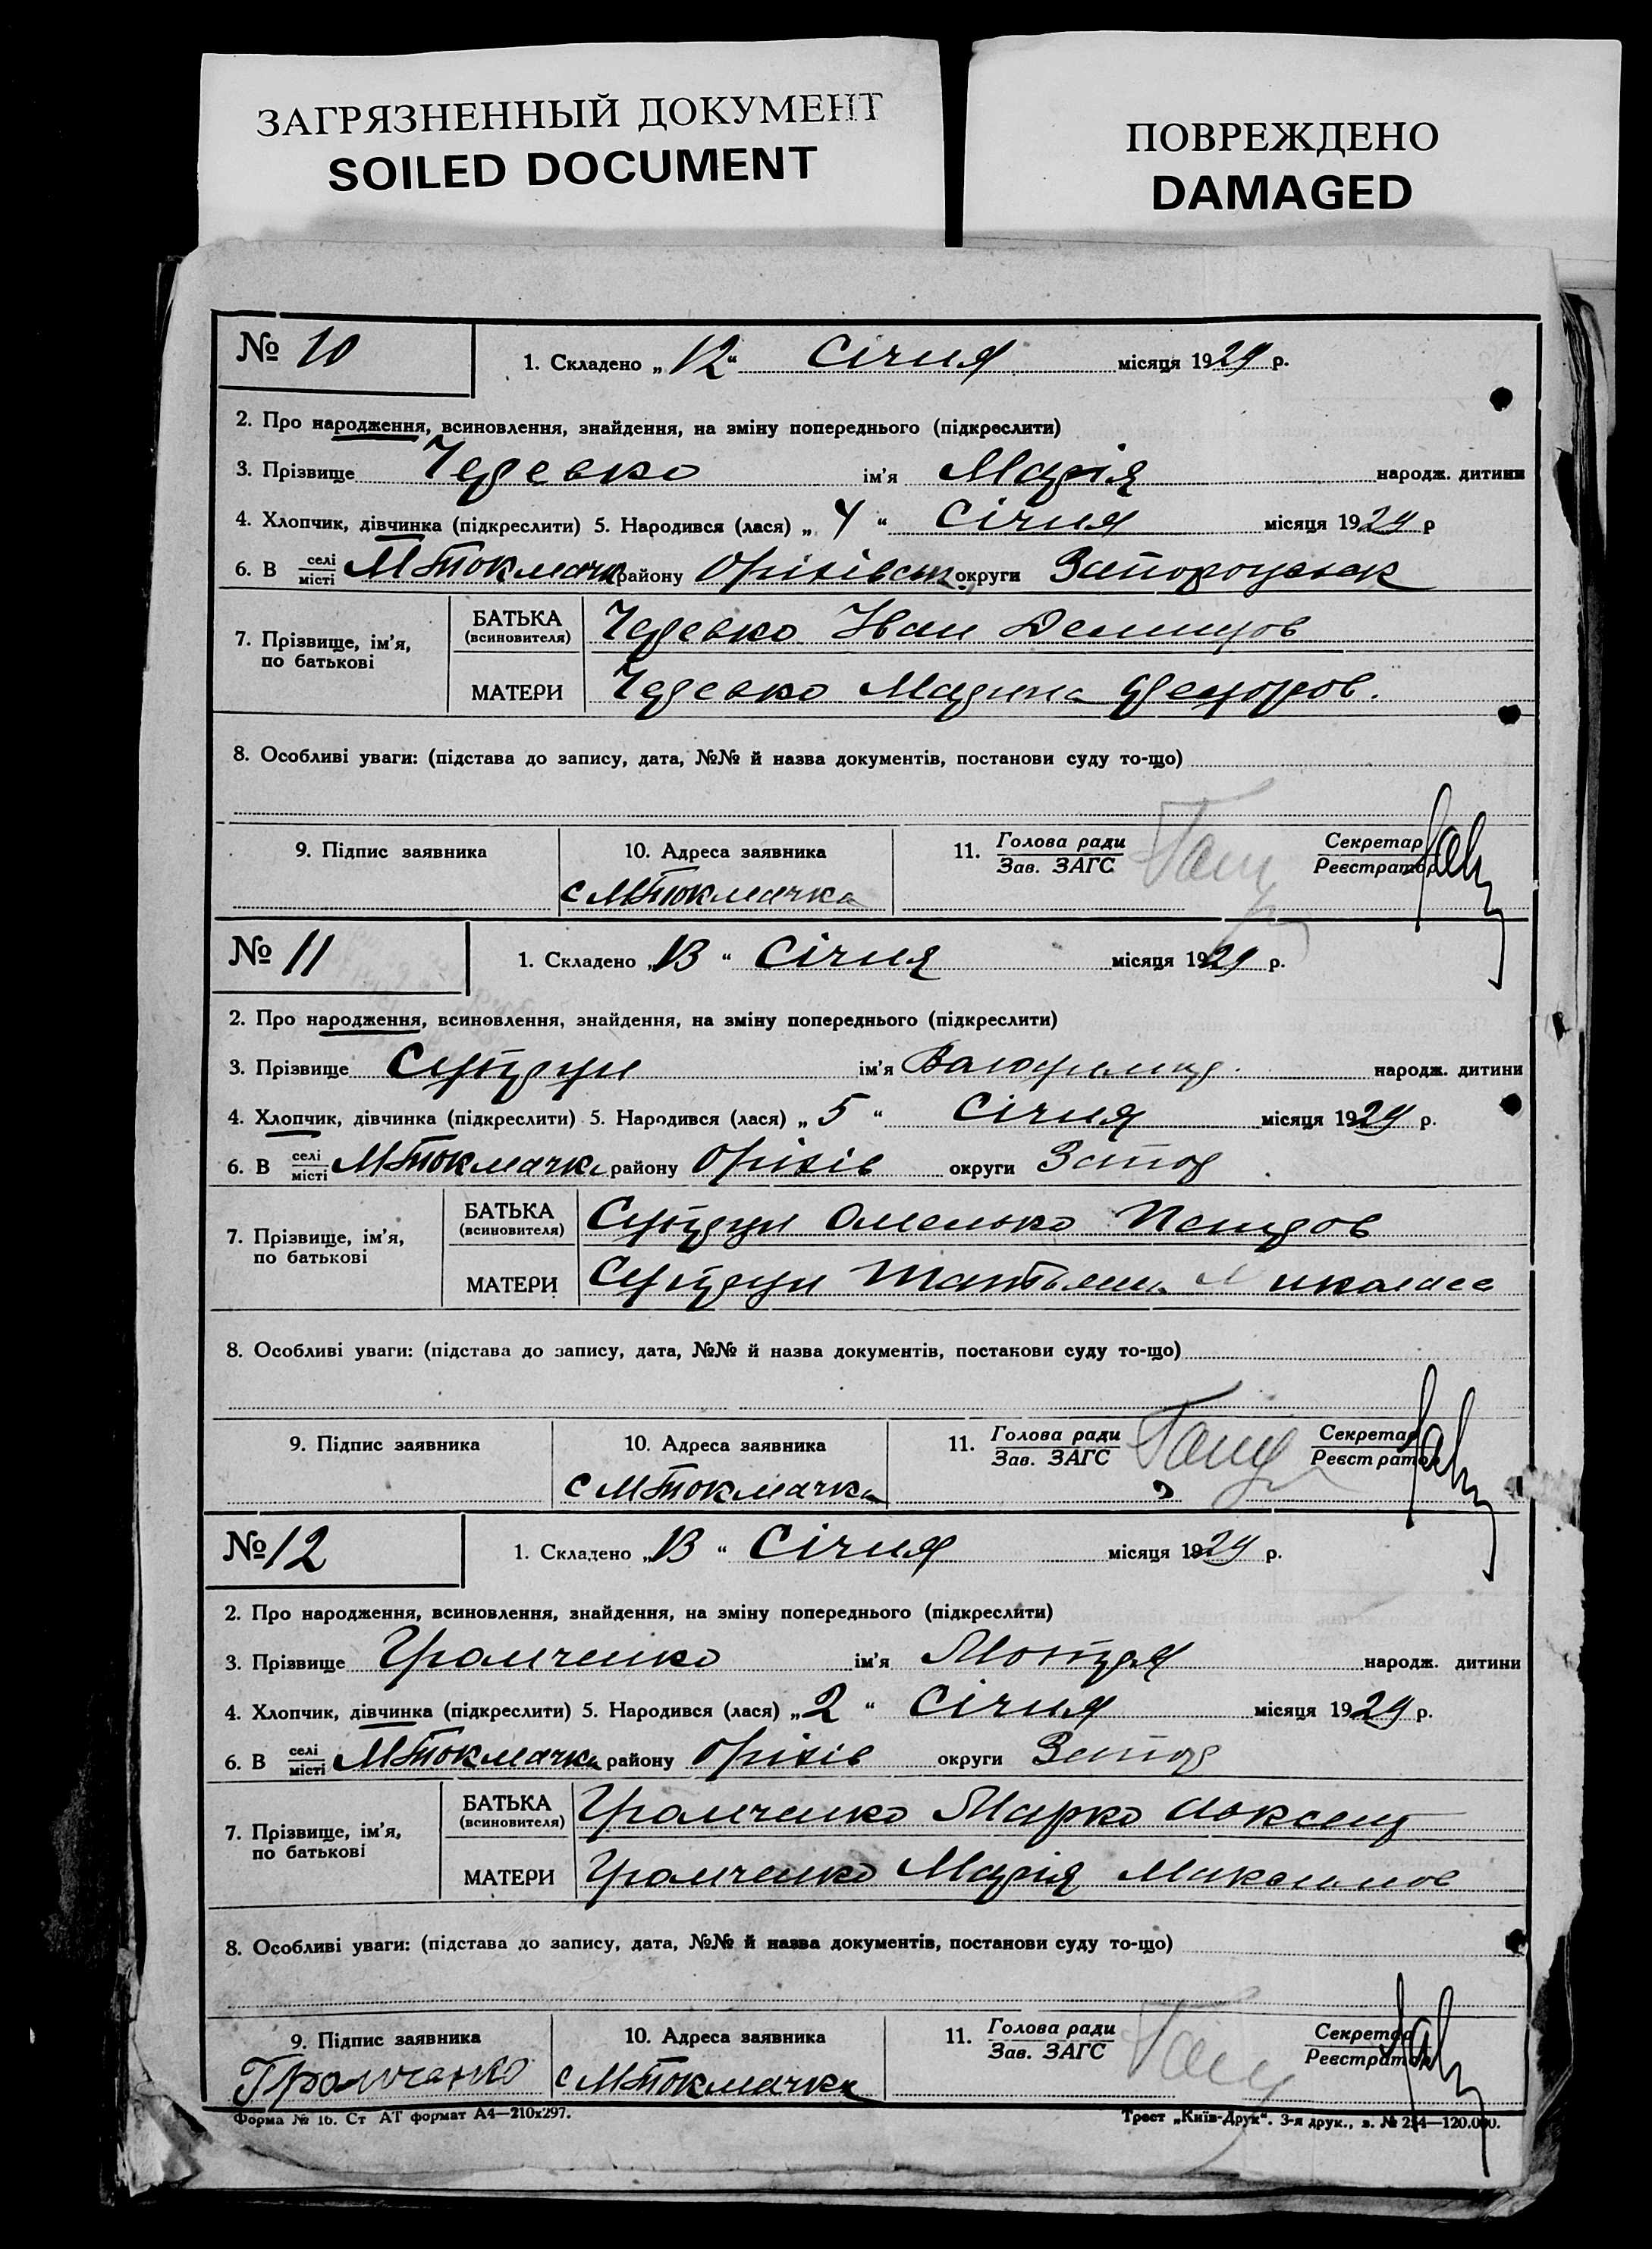 ЗАГРЯЗНЕННЫЙ ДОКУМЕНТ
SOILED DOCUMENT
ПОВРЕЖДЕНО
DAMAGED
№ 10
1. Складено „12“ Січня місяця 1929 р.
2. Про народження, всиновлення, знайдення, на зміну попереднього (підкреслити)
3. Прізвище ім'я Марія народж. дитини
4. Хлопчик, дівчинка (підкреслити) 5. Народився (лася) „4“ Січня місяця 1929 р
6. В селі/місті МТокмачк району Оріхівськ округи Запороцьк
7. Прізвище, ім'я, по батькові
БАТЬКА (всиновителя) Іван
МАТЕРИ
8. Особливі уваги: (підстава до запису, дата, №№ й назва документів, постанови суду то-що)
9. Підпис заявника
10. Адреса заявника
с МТокмачка
11. Голова ради/Зав. ЗАГС
Секретар/Реєстратор
№ 11
1. Складено „13“ Січня місяця 1929 р.
2. Про народження, всиновлення, знайдення, на зміну попереднього (підкреслити)
3. Прізвище ім'я народж. дитини
4. Хлопчик, дівчинка (підкреслити) 5. Народився (лася) „5“ Січня місяця 1929 р.
6. В селі/місті МТокмачка району Оріхів округи Запор
7. Прізвище, ім'я, по батькові
БАТЬКА (всиновителя) Омелько
МАТЕРИ Татьяна Николаев
8. Особливі уваги: (підстава до запису, дата, №№ й назва документів, постанови суду то-що)
9. Підпис заявника
10. Адреса заявника
с МТокмачка
11. Голова ради/Зав. ЗАГС
Секретар/Реєстратор
№ 12
1. Складено „13“ Січня місяця 1929 р.
2. Про народження, всиновлення, знайдення, на зміну попереднього (підкреслити)
3. Прізвище Громченко ім'я Мотря народж. дитини
4. Хлопчик, дівчинка (підкреслити) 5. Народився (лася) „2“ Січня місяця 1929 р.
6. В селі/місті МТокмачка району Оріхів округи Запор
7. Прізвище, ім'я, по батькові
БАТЬКА (всиновителя) Громченко Марко Авксент
МАТЕРИ Громченко Марія Максимов
8. Особливі уваги: (підстава до запису, дата, №№ й назва документів, постанови суду то-що)
9. Підпис заявника
Громченко
10. Адреса заявника
с МТокмачка
11. Голова ради/Зав. ЗАГС
Секретар/Реєстратор
Форма № 16. Ст АТ формат А4—210х297.
Трест „Київ-Друк“. 3-я друк., з. № 254—120.000.